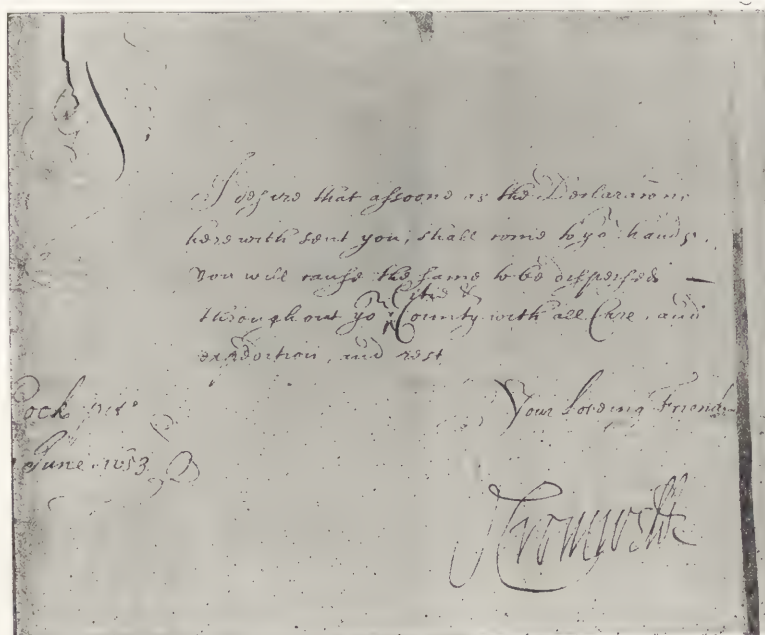 Sr
I desire that assoone as the Declarations
herewith sent you, shall come to yor hands,
you will cause the same to be dispersed —
throughout yor Citie & County with all Care, and
expedition, and rest
Cock pit
June 1653
Your loveing Friend
O Cromwell